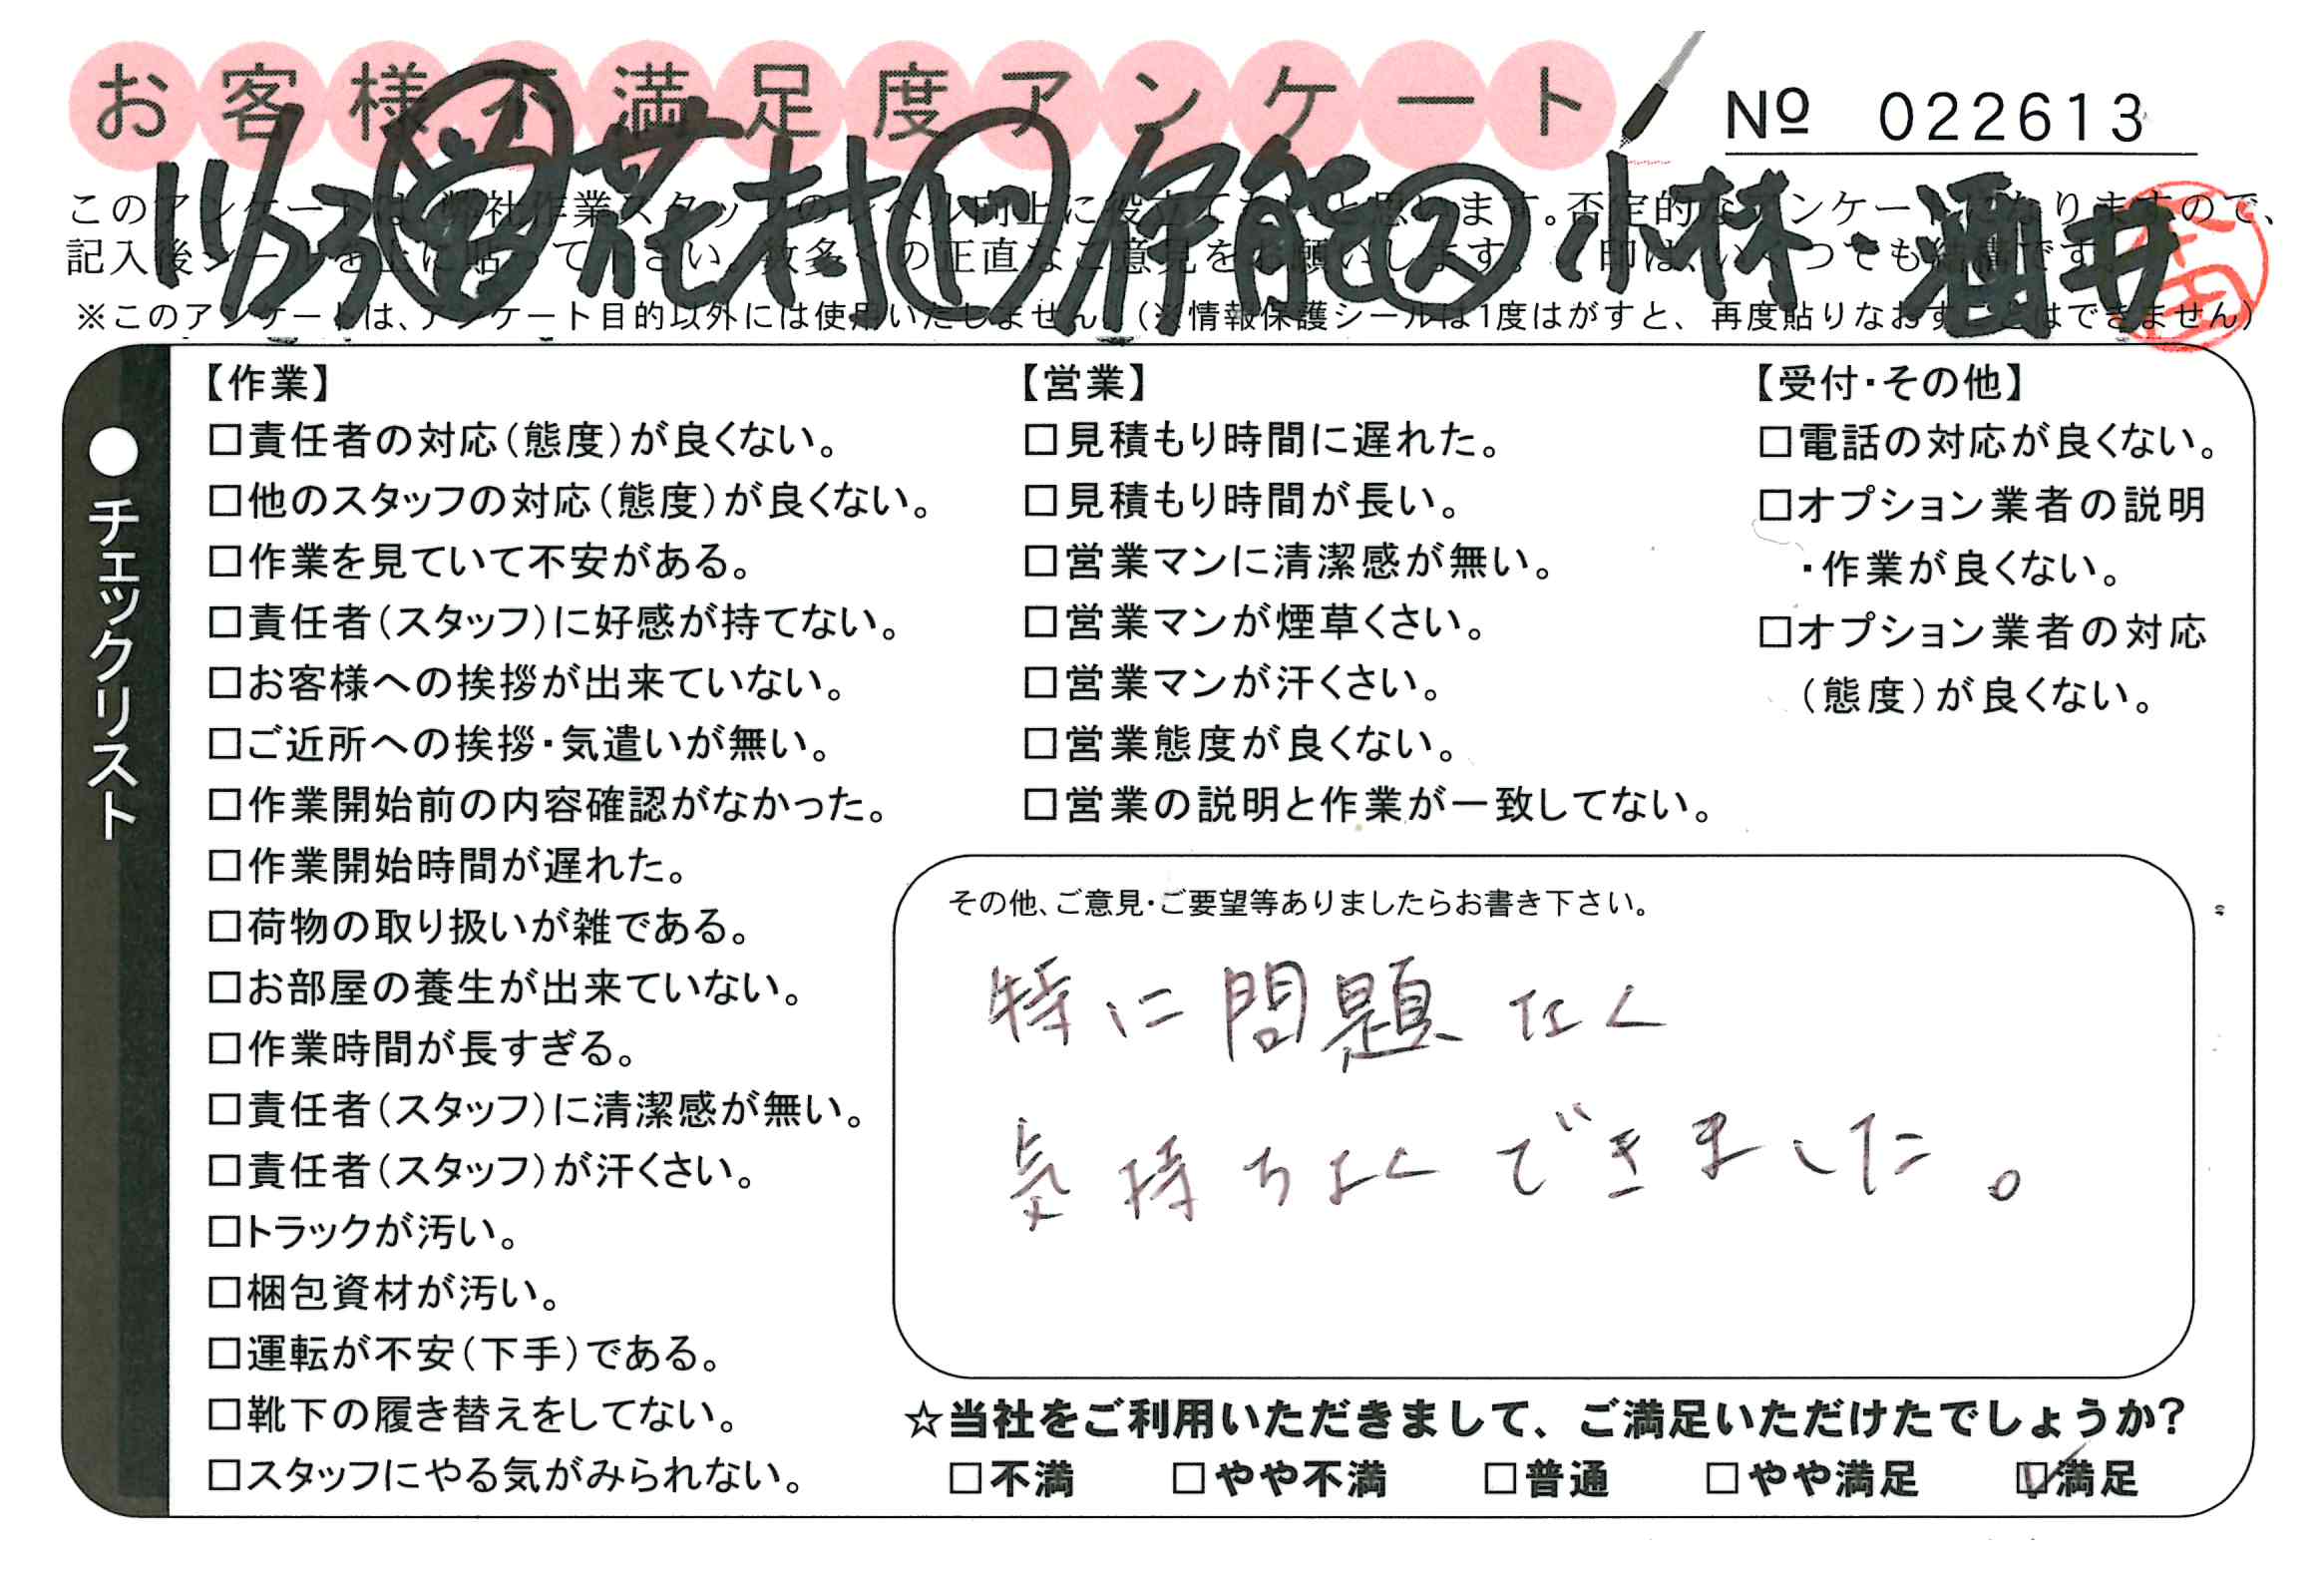 お客様不満足度アンケート
№ 022613
11/23 営 花村 1 伊能 2 小林・酒井
※このアンケートは、アンケート目的以外には使用いたしません。(※情報保護シールは1度はがすと、再度貼りなおすことはできません)
●チェックリスト
【作業】
□責任者の対応(態度)が良くない。
□他のスタッフの対応(態度)が良くない。
□作業を見ていて不安がある。
□責任者(スタッフ)に好感が持てない。
□お客様への挨拶が出来ていない。
□ご近所への挨拶・気遣いが無い。
□作業開始前の内容確認がなかった。
□作業開始時間が遅れた。
□荷物の取り扱いが雑である。
□お部屋の養生が出来ていない。
□作業時間が長すぎる。
□責任者(スタッフ)に清潔感が無い。
□責任者(スタッフ)が汗くさい。
□トラックが汚い。
□梱包資材が汚い。
□運転が不安(下手)である。
□靴下の履き替えをしてない。
□スタッフにやる気がみられない。
【営業】
□見積もり時間に遅れた。
□見積もり時間が長い。
□営業マンに清潔感が無い。
□営業マンが煙草くさい。
□営業マンが汗くさい。
□営業態度が良くない。
□営業の説明と作業が一致してない。
【受付・その他】
□電話の対応が良くない。
□オプション業者の説明
・作業が良くない。
□オプション業者の対応
(態度)が良くない。
その他、ご意見・ご要望等ありましたらお書き下さい。
特に問題なく
気持ちよくできました。
☆当社をご利用いただきまして、ご満足いただけたでしょうか?
□不満 □やや不満 □普通 □やや満足 ☑満足